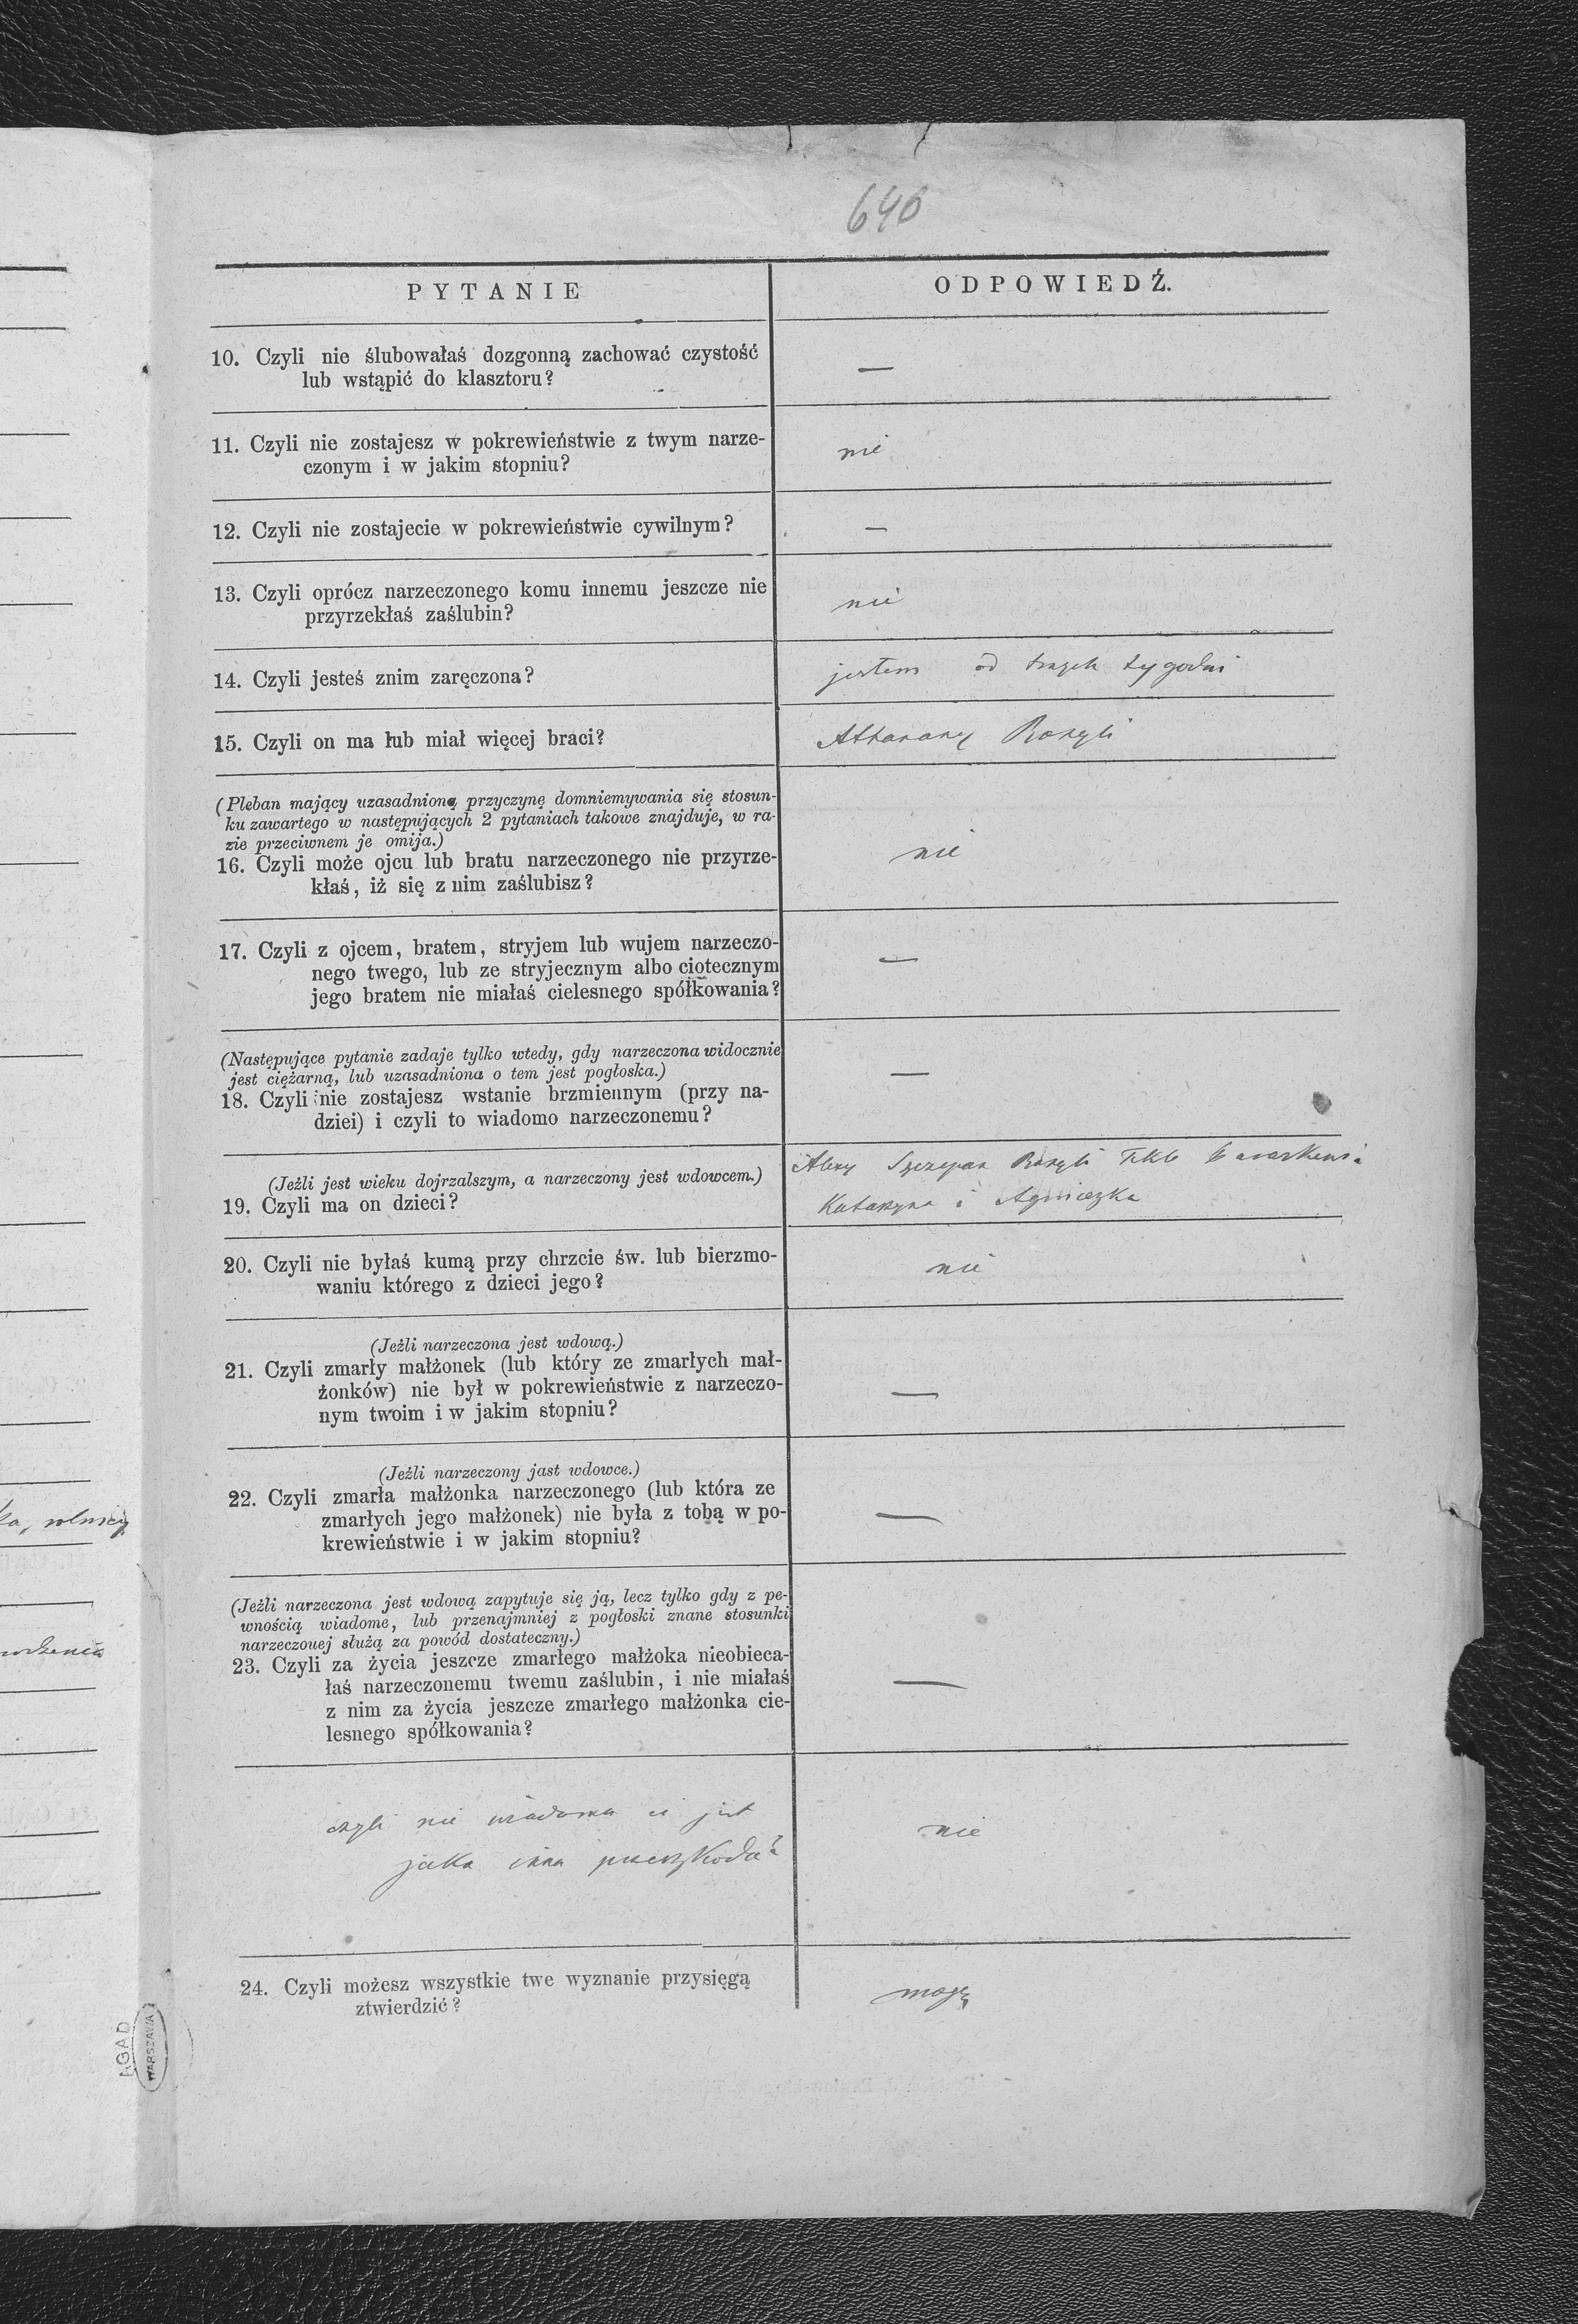 640
PYTANIE
ODPOWIEDŹ.
10. Czyli nie ślubowałaś dozgonną zachować czystość
lub wstąpić do klasztoru?
—
11. Czyli nie zostajesz w pokrewieństwie z twym narze-
czonym i w jakim stopniu?
nie
12. Czyli nie zostajecie w pokrewieństwie cywilnym?
—
13. Czyli oprócz narzeczonego komu innemu jeszcze nie
przyrzekłaś zaślubin?
nie
14. Czyli jesteś znim zaręczona?
jestem od trzech tygodni
15. Czyli on ma lub miał więcej braci?
Athanazy Bazyli
(Pleban mający uzasadnioną przyczynę domniemywania się stosun-
ku zawartego w następujących 2 pytaniach takowe znajduje, w ra-
zie przeciwnem je omija.)
16. Czyli może ojcu lub bratu narzeczonego nie przyrze-
kłaś, iż się z nim zaślubisz?
nie
17. Czyli z ojcem, bratem, stryjem lub wujem narzeczo-
nego twego, lub ze stryjecznym albo ciotecznym
jego bratem nie miałaś cielesnego spółkowania?
—
(Następujące pytanie zadaje tylko wtedy, gdy narzeczona widocznie
jest ciężarną, lub uzasadniona o tem jest pogłoska.)
18. Czyli nie zostajesz wstanie brzmiennym (przy na-
dziei) i czyli to wiadomo narzeczonemu?
—
(Jeźli jest wieku dojrzalszym, a narzeczony jest wdowcem.)
19. Czyli ma on dzieci?
Alexy Szczepan Bazyli Tekla
Katarzyna i Agnieszka
20. Czyli nie byłaś kumą przy chrzcie św. lub bierzmo-
waniu którego z dzieci jego?
nie
(Jeźli narzeczona jest wdową.)
21. Czyli zmarły małżonek (lub który ze zmarłych mał-
żonków) nie był w pokrewieństwie z narzeczo-
nym twoim i w jakim stopniu?
—
(Jeźli narzeczony jast wdowce.)
22. Czyli zmarła małżonka narzeczonego (lub która ze
zmarłych jego małżonek) nie była z tobą w po-
krewieństwie i w jakim stopniu?
—
(Jeźli narzeczona jest wdową zapytuje się ją, lecz tylko gdy z pe-
wnością wiadome, lub przenajmniej z pogłoski znane stosunki
narzeczouej służą za powód dostateczny.)
23. Czyli za życia jeszcze zmarłego małżoka nieobieca-
łaś narzeczonemu twemu zaślubin, i nie miałaś
z nim za życia jeszcze zmarłego małżonka cie-
lesnego spółkowania?
—
czyli nie wiadoma ci jest
jaka inna przeszkoda?
nie
24. Czyli możesz wszystkie twe wyznanie przysięgą
ztwierdzić?
mogę
AGAD
WARSZAWA